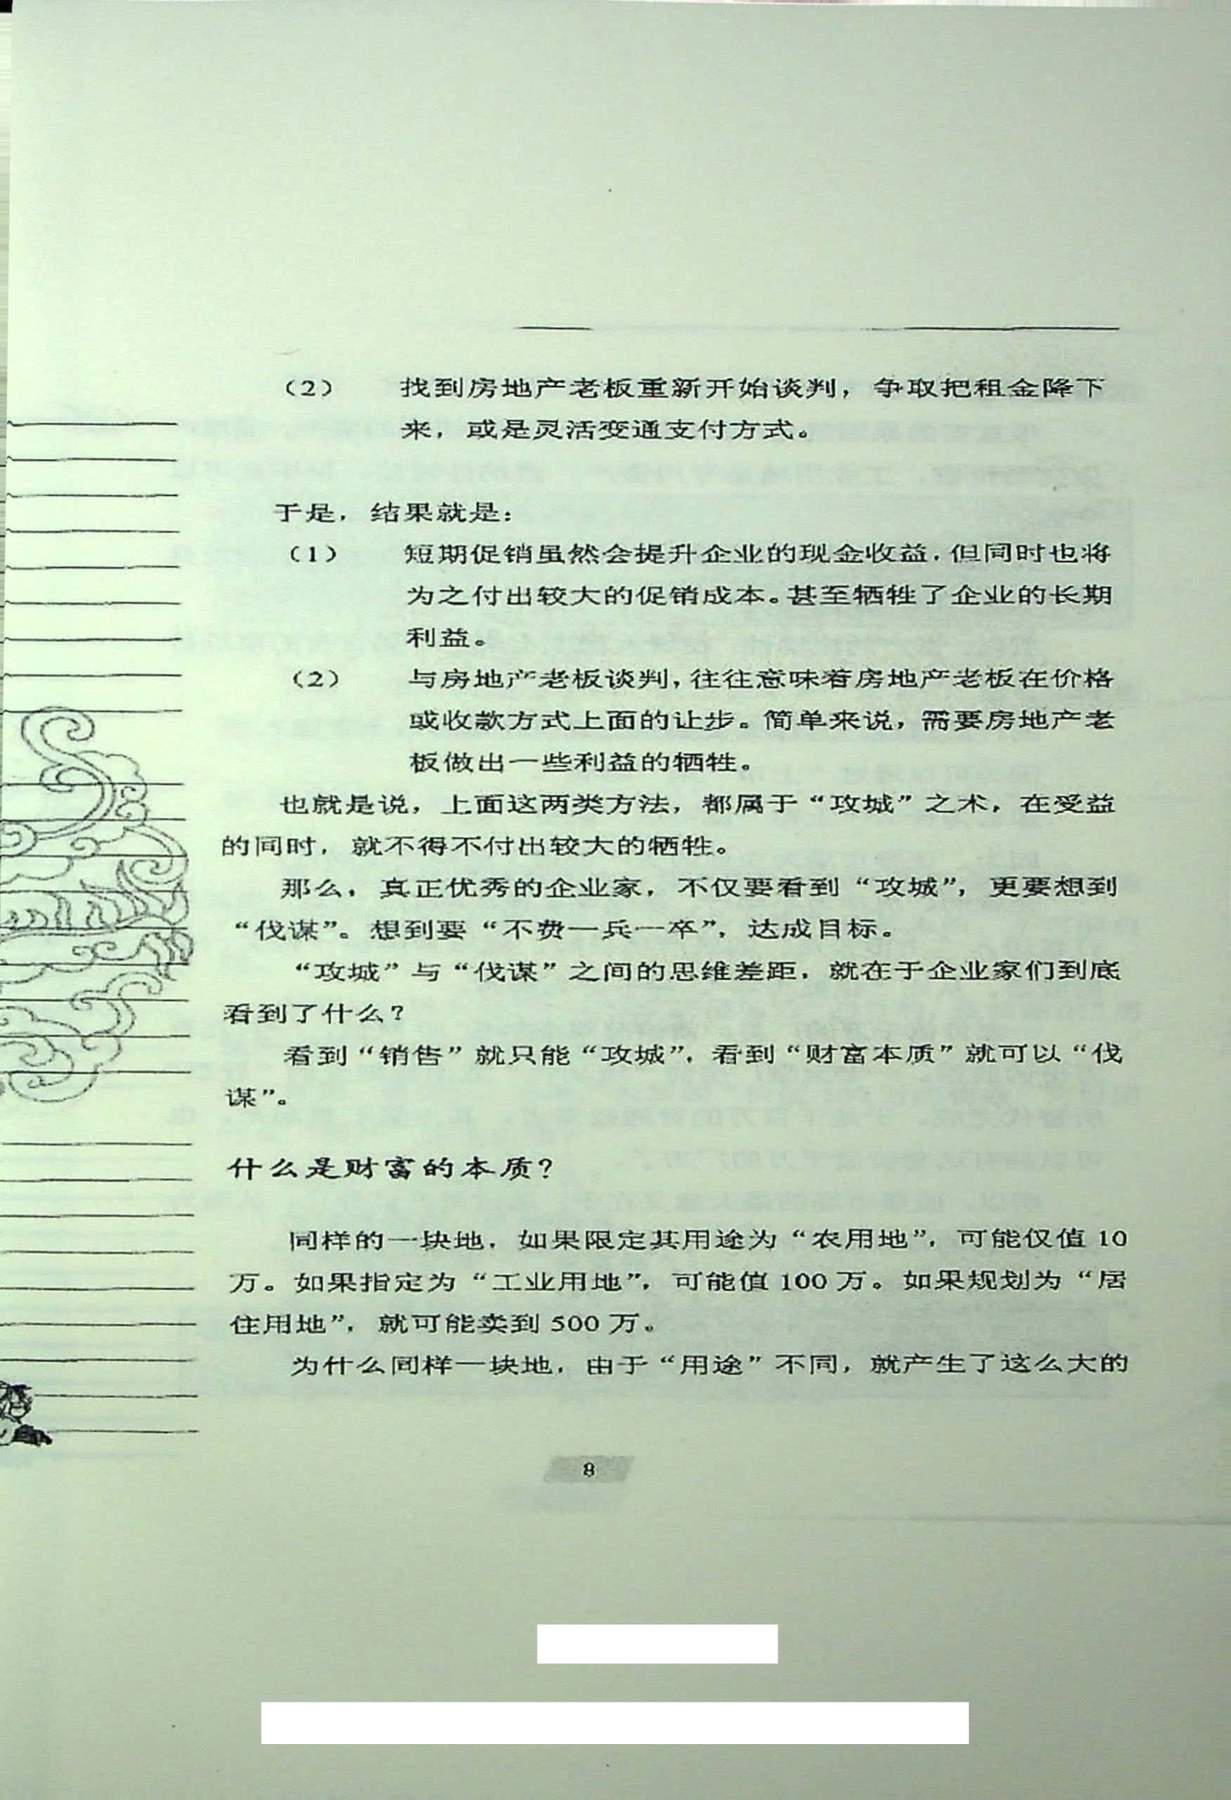 （2） 找到房地产老板重新开始谈判，争取把租金降下
来，或是灵活变通支付方式。
于是，结果就是：
（1） 短期促销虽然会提升企业的现金收益，但同时也将
为之付出较大的促销成本。甚至牺牲了企业的长期
利益。
（2） 与房地产老板谈判，往往意味着房地产老板在价格
或收款方式上面的让步。简单来说，需要房地产老
板做出一些利益的牺牲。
也就是说，上面这两类方法，都属于“攻城”之术，在受益
的同时，就不得不付出较大的牺牲。
那么，真正优秀的企业家，不仅要看到“攻城”，更要想到
“伐谋”。想到要“不费一兵一卒”，达成目标。
“攻城”与“伐谋”之间的思维差距，就在于企业家们到底
看到了什么？
看到“销售”就只能“攻城”，看到“财富本质”就可以“伐
谋”。
什么是财富的本质？
同样的一块地，如果限定其用途为“农用地”，可能仅值 10
万。如果指定为“工业用地”，可能值 100 万。如果规划为“居
住用地”，就可能卖到 500 万。
为什么同样一块地，由于“用途”不同，就产生了这么大的
8